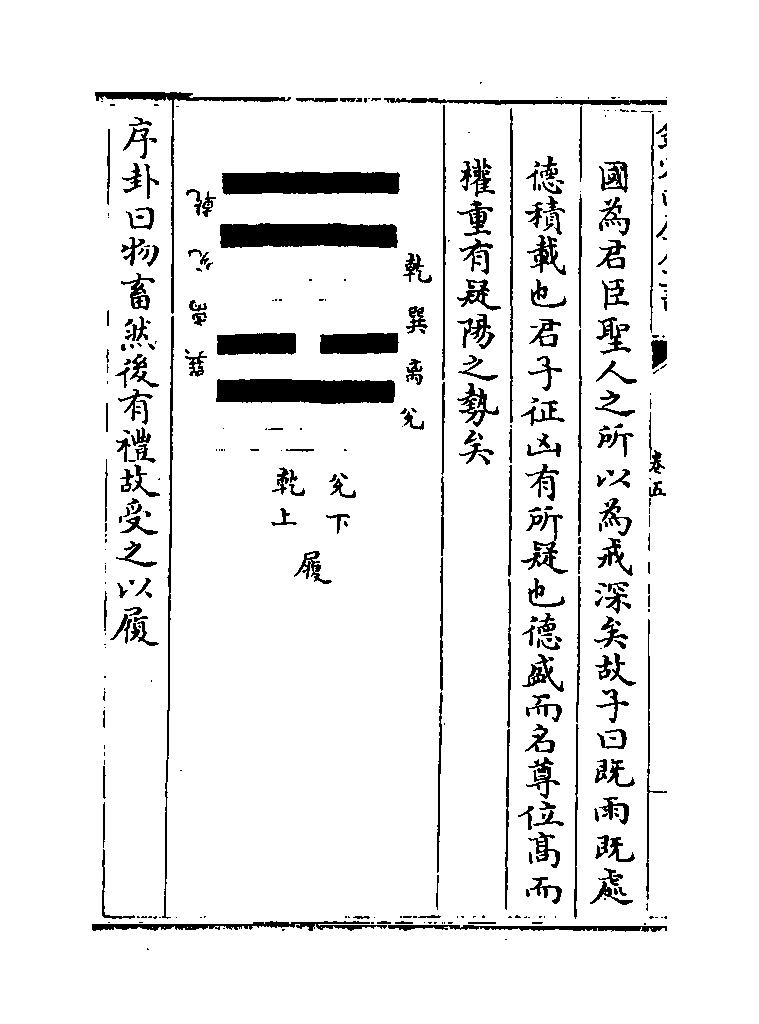 卷五
國為君臣聖人之所以為戒深矣故子曰既雨既處
德積載也君子征凶有所疑也德盛而名尊位髙而
權重有疑陽之勢矣
乾
巽
离
兊
兊下
乾上
履
乾
兊
离
巽
序卦曰物畜然後有禮故受之以履